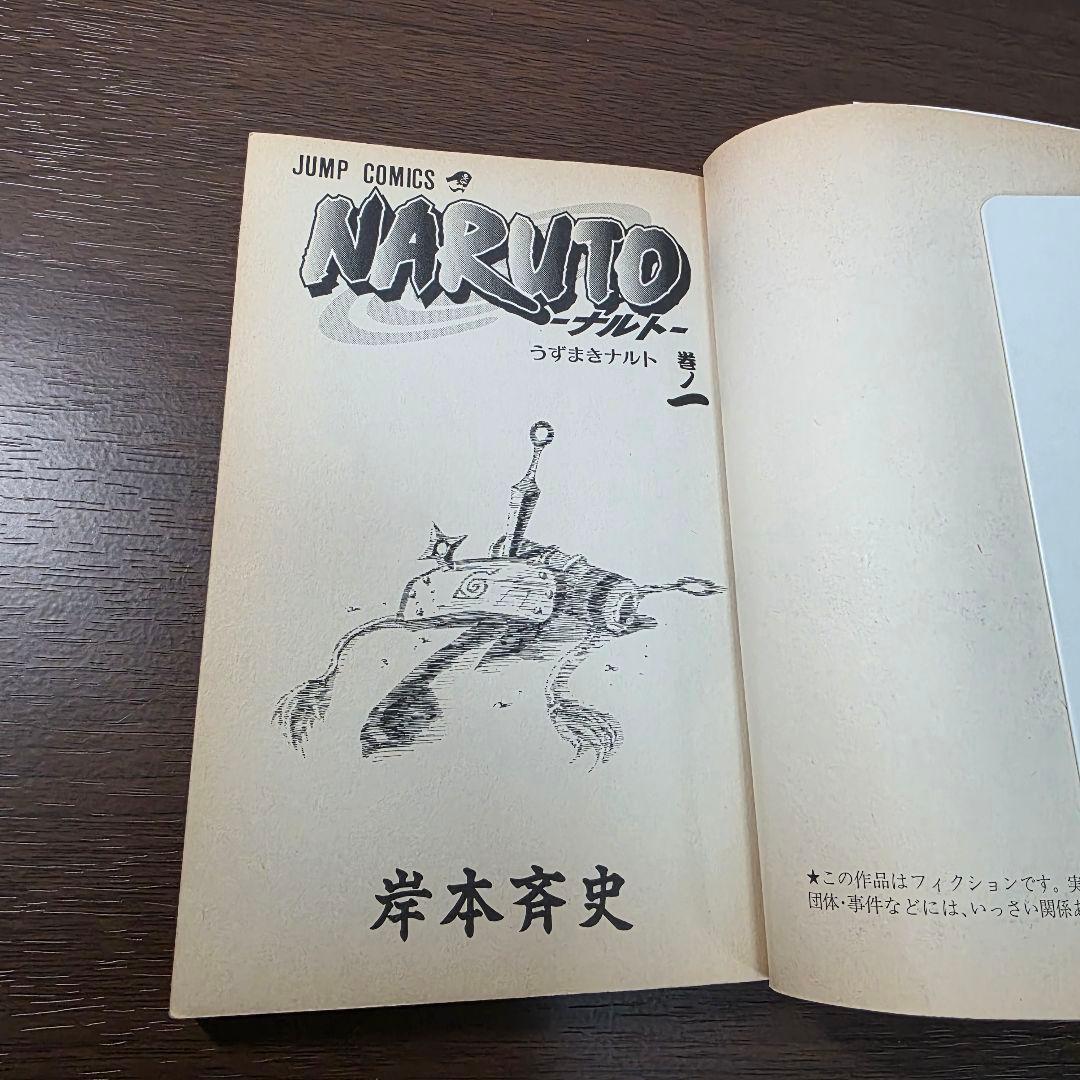 JUMP COMICS
NARUTO
-ナルト-
うずまきナルト
巻ノ一
岸本斉史
★この作品はフィクションです。実
団体・事件などには、いっさい関係あ